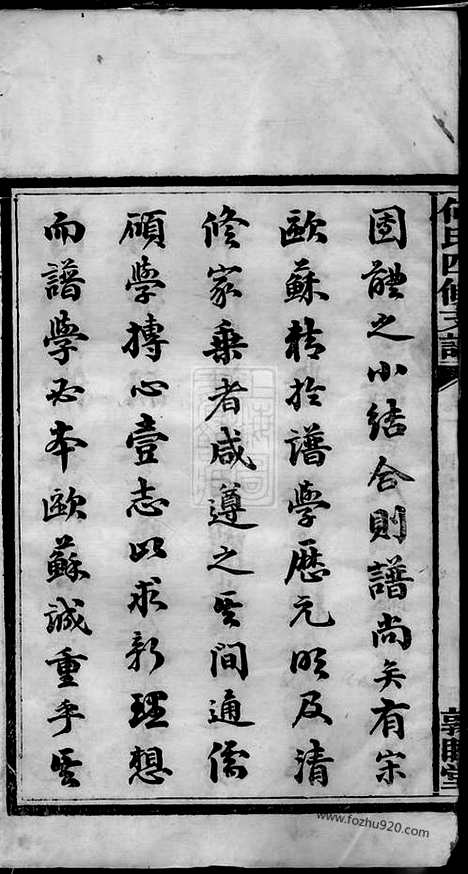 何氏四修支譜
敦睦堂
固體之小結合則譜尚矣有宋
歐蘇精於譜學歷元明及清
修家乘者咸遵之其間通儒
碩學摶心壹志以求新理想
而譜學必本歐蘇誠重乎其
www.fozhu920.com